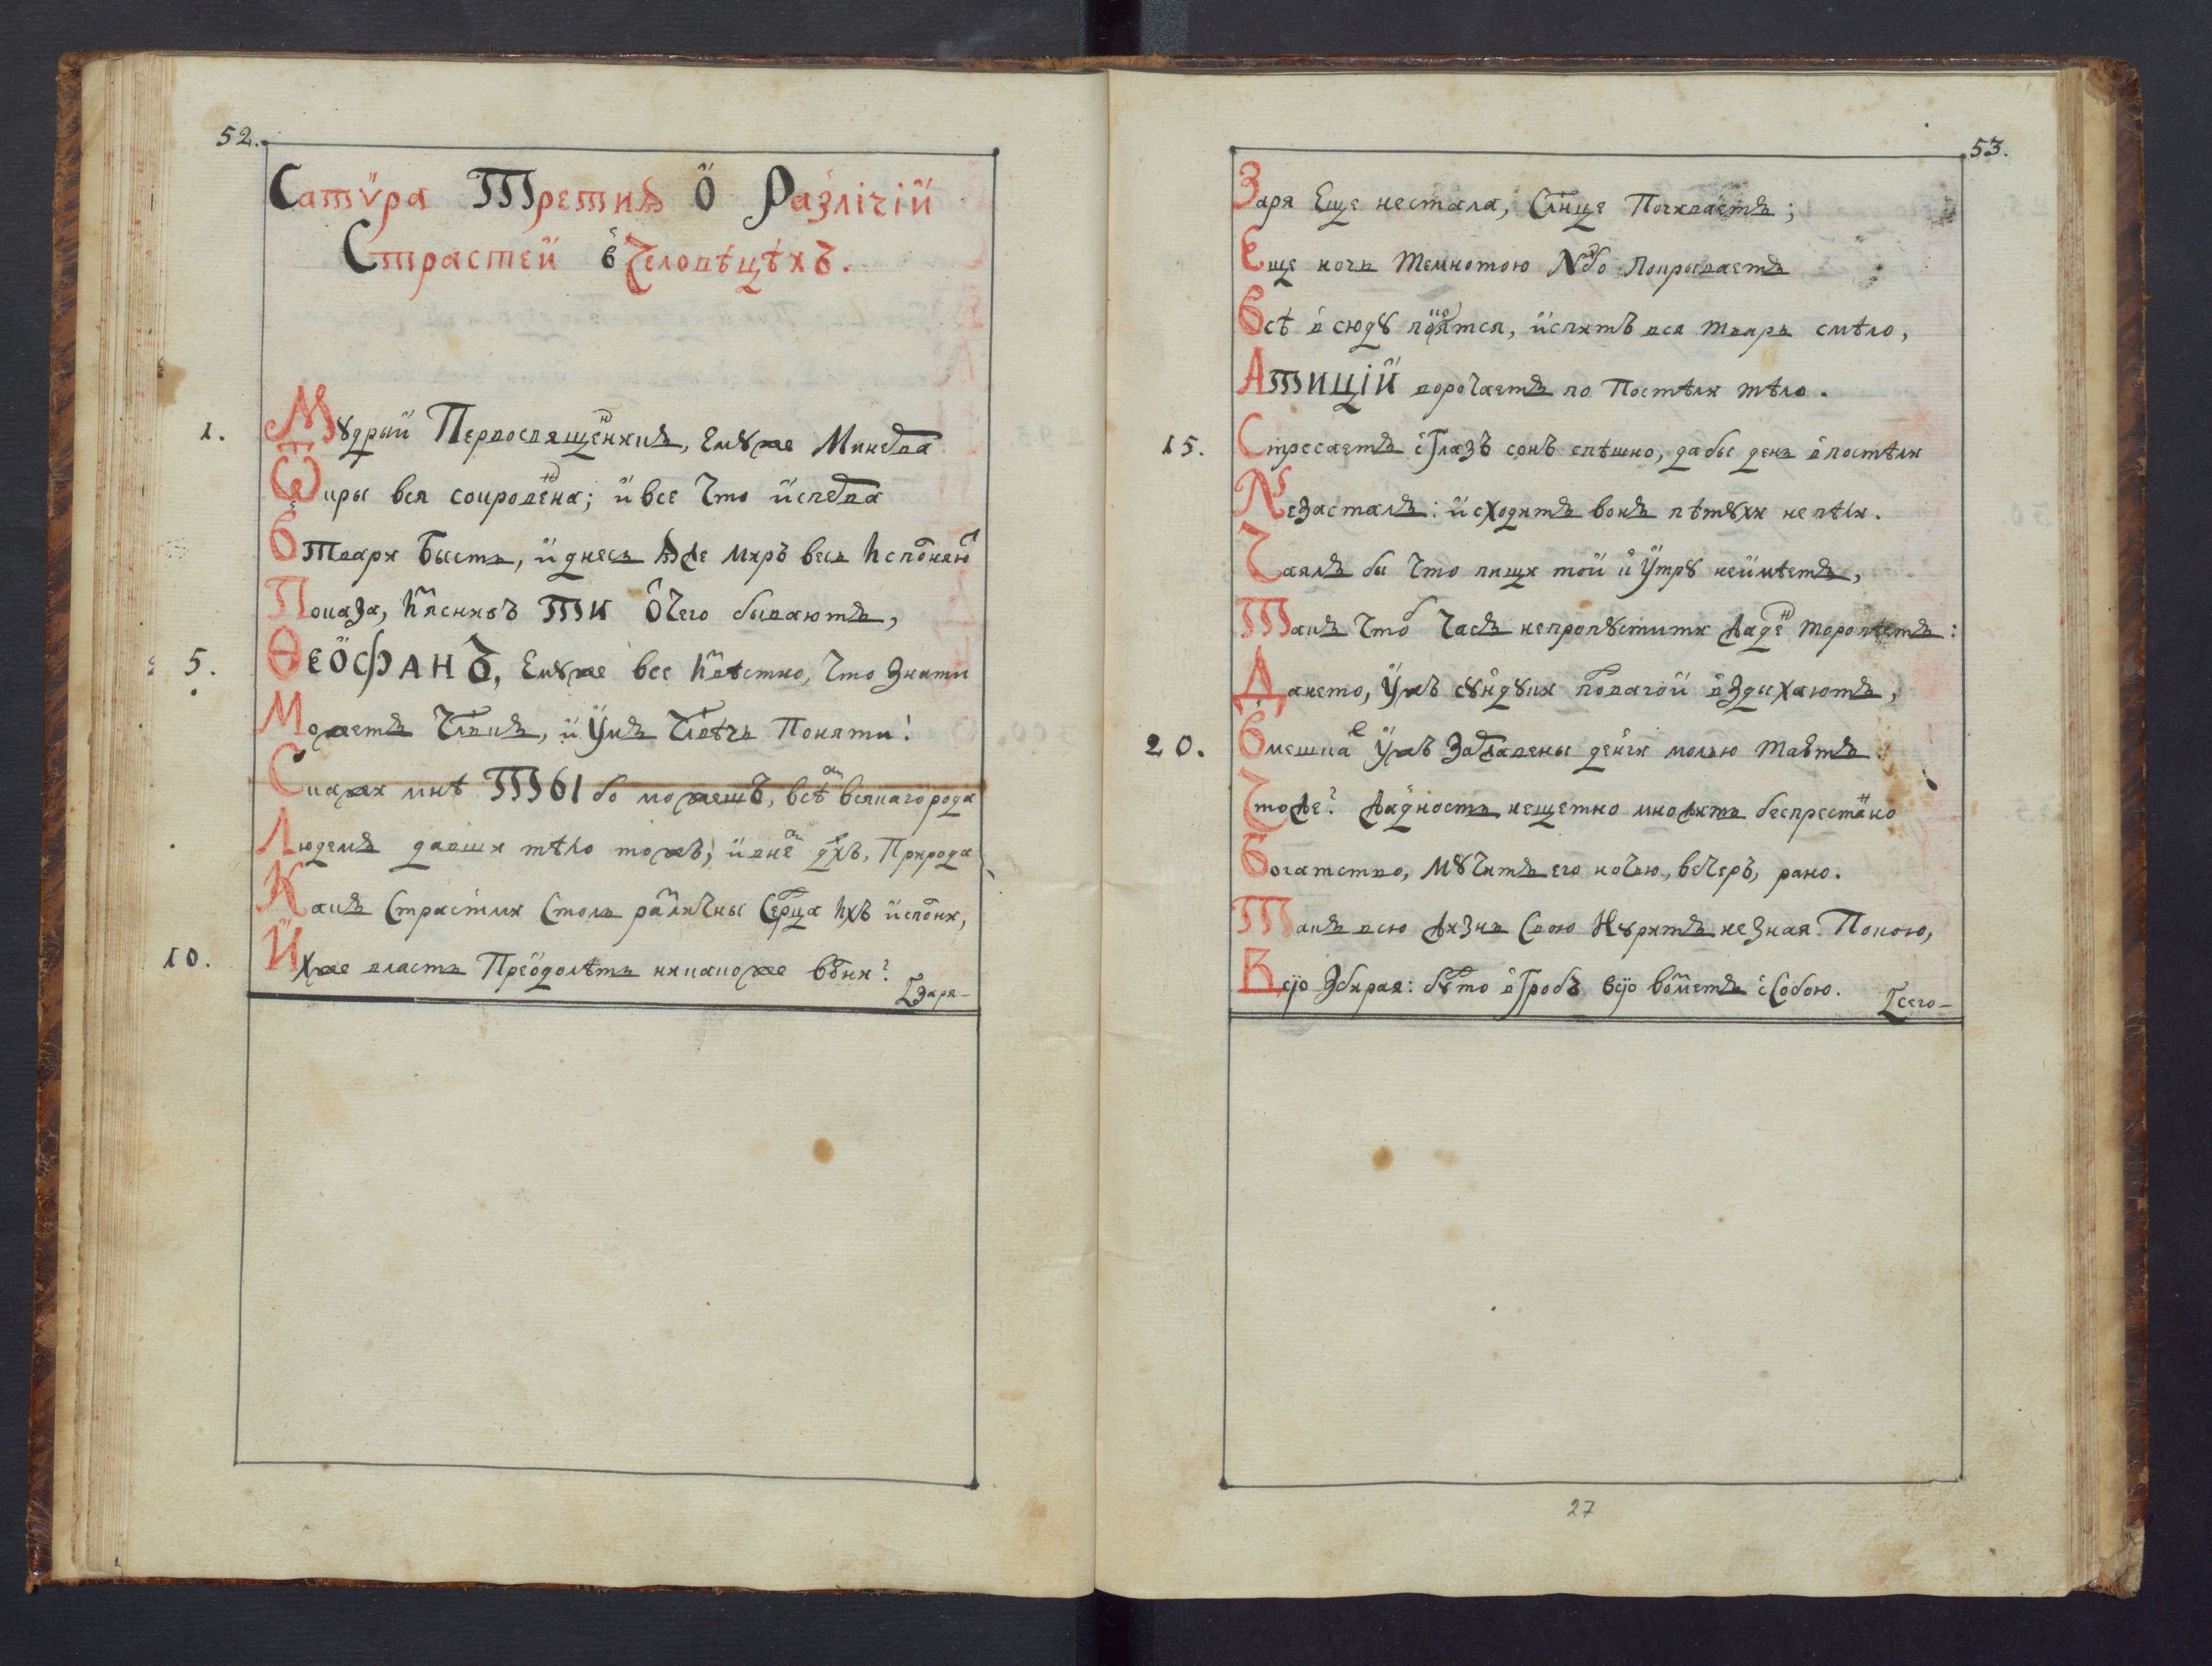 52.
Сатѷра Третиѧ О Разлічій
Страстей в Человѣцѣхъ.
1. Мꙋдрый Первосвященникъ, Емꙋже Минерва
Ѿкры вся сокровенна; и все что исперва
В Твари бысть, и днесь Яже миръ весь Исполняют
Показа, Изяснивъ ТИ Отчего бываютъ,
5. ѲЕОФАНЪ, Емꙋже все Извѣстно, что Знати
Можетъ Члвкъ, и Умъ Члвѣчь Поняти!
Скажи мнѣ ТЫ бо можешъ, всѣм всякаго рода
Людемъ давши тѣло тожъ; и внем дхъ, Природа
Какъ Страстми Столь различны Серца Ихъ исполни,
10. Ихже власть Преодолѣть никакоже волни?
Заря-
53.
Заря Еще нестала, Слнце Почиваетъ;
Еще ночь Темнотою Нбо Покрываетъ
Всѣ всюдꙋ покоятся, и спитъ вся тварь смѣло,
АТИЦІЙ ворочаетъ по Постѣли тѣло.
15. Стресаетъ с Глазъ сонъ спѣшно, дабы день в постѣли
Незасталъ: и сходитъ вонъ пѣтꙋхи не пѣли.
Чаялъ бы что пищи той к Утрꙋ неимѣетъ,
Такъ что б Часъ непропꙋстити жаден торопѣетъ:
Дането, Ужъ сꙋндꙋки подлагой вздыхаютъ,
20. В мешках Ужъ Заплавены денги молью таютъ.
Чтоже? жадность нещетно множить беспрестанно
Богатство, мꙋчитъ его ночью, вечеръ, рано.
Такъ всю жизнь Свою Нꙋритъ не Зная Покою,
Всіо Збирая: бꙋтто в Гробъ всіо возметъ с Собою.
Сего-
27